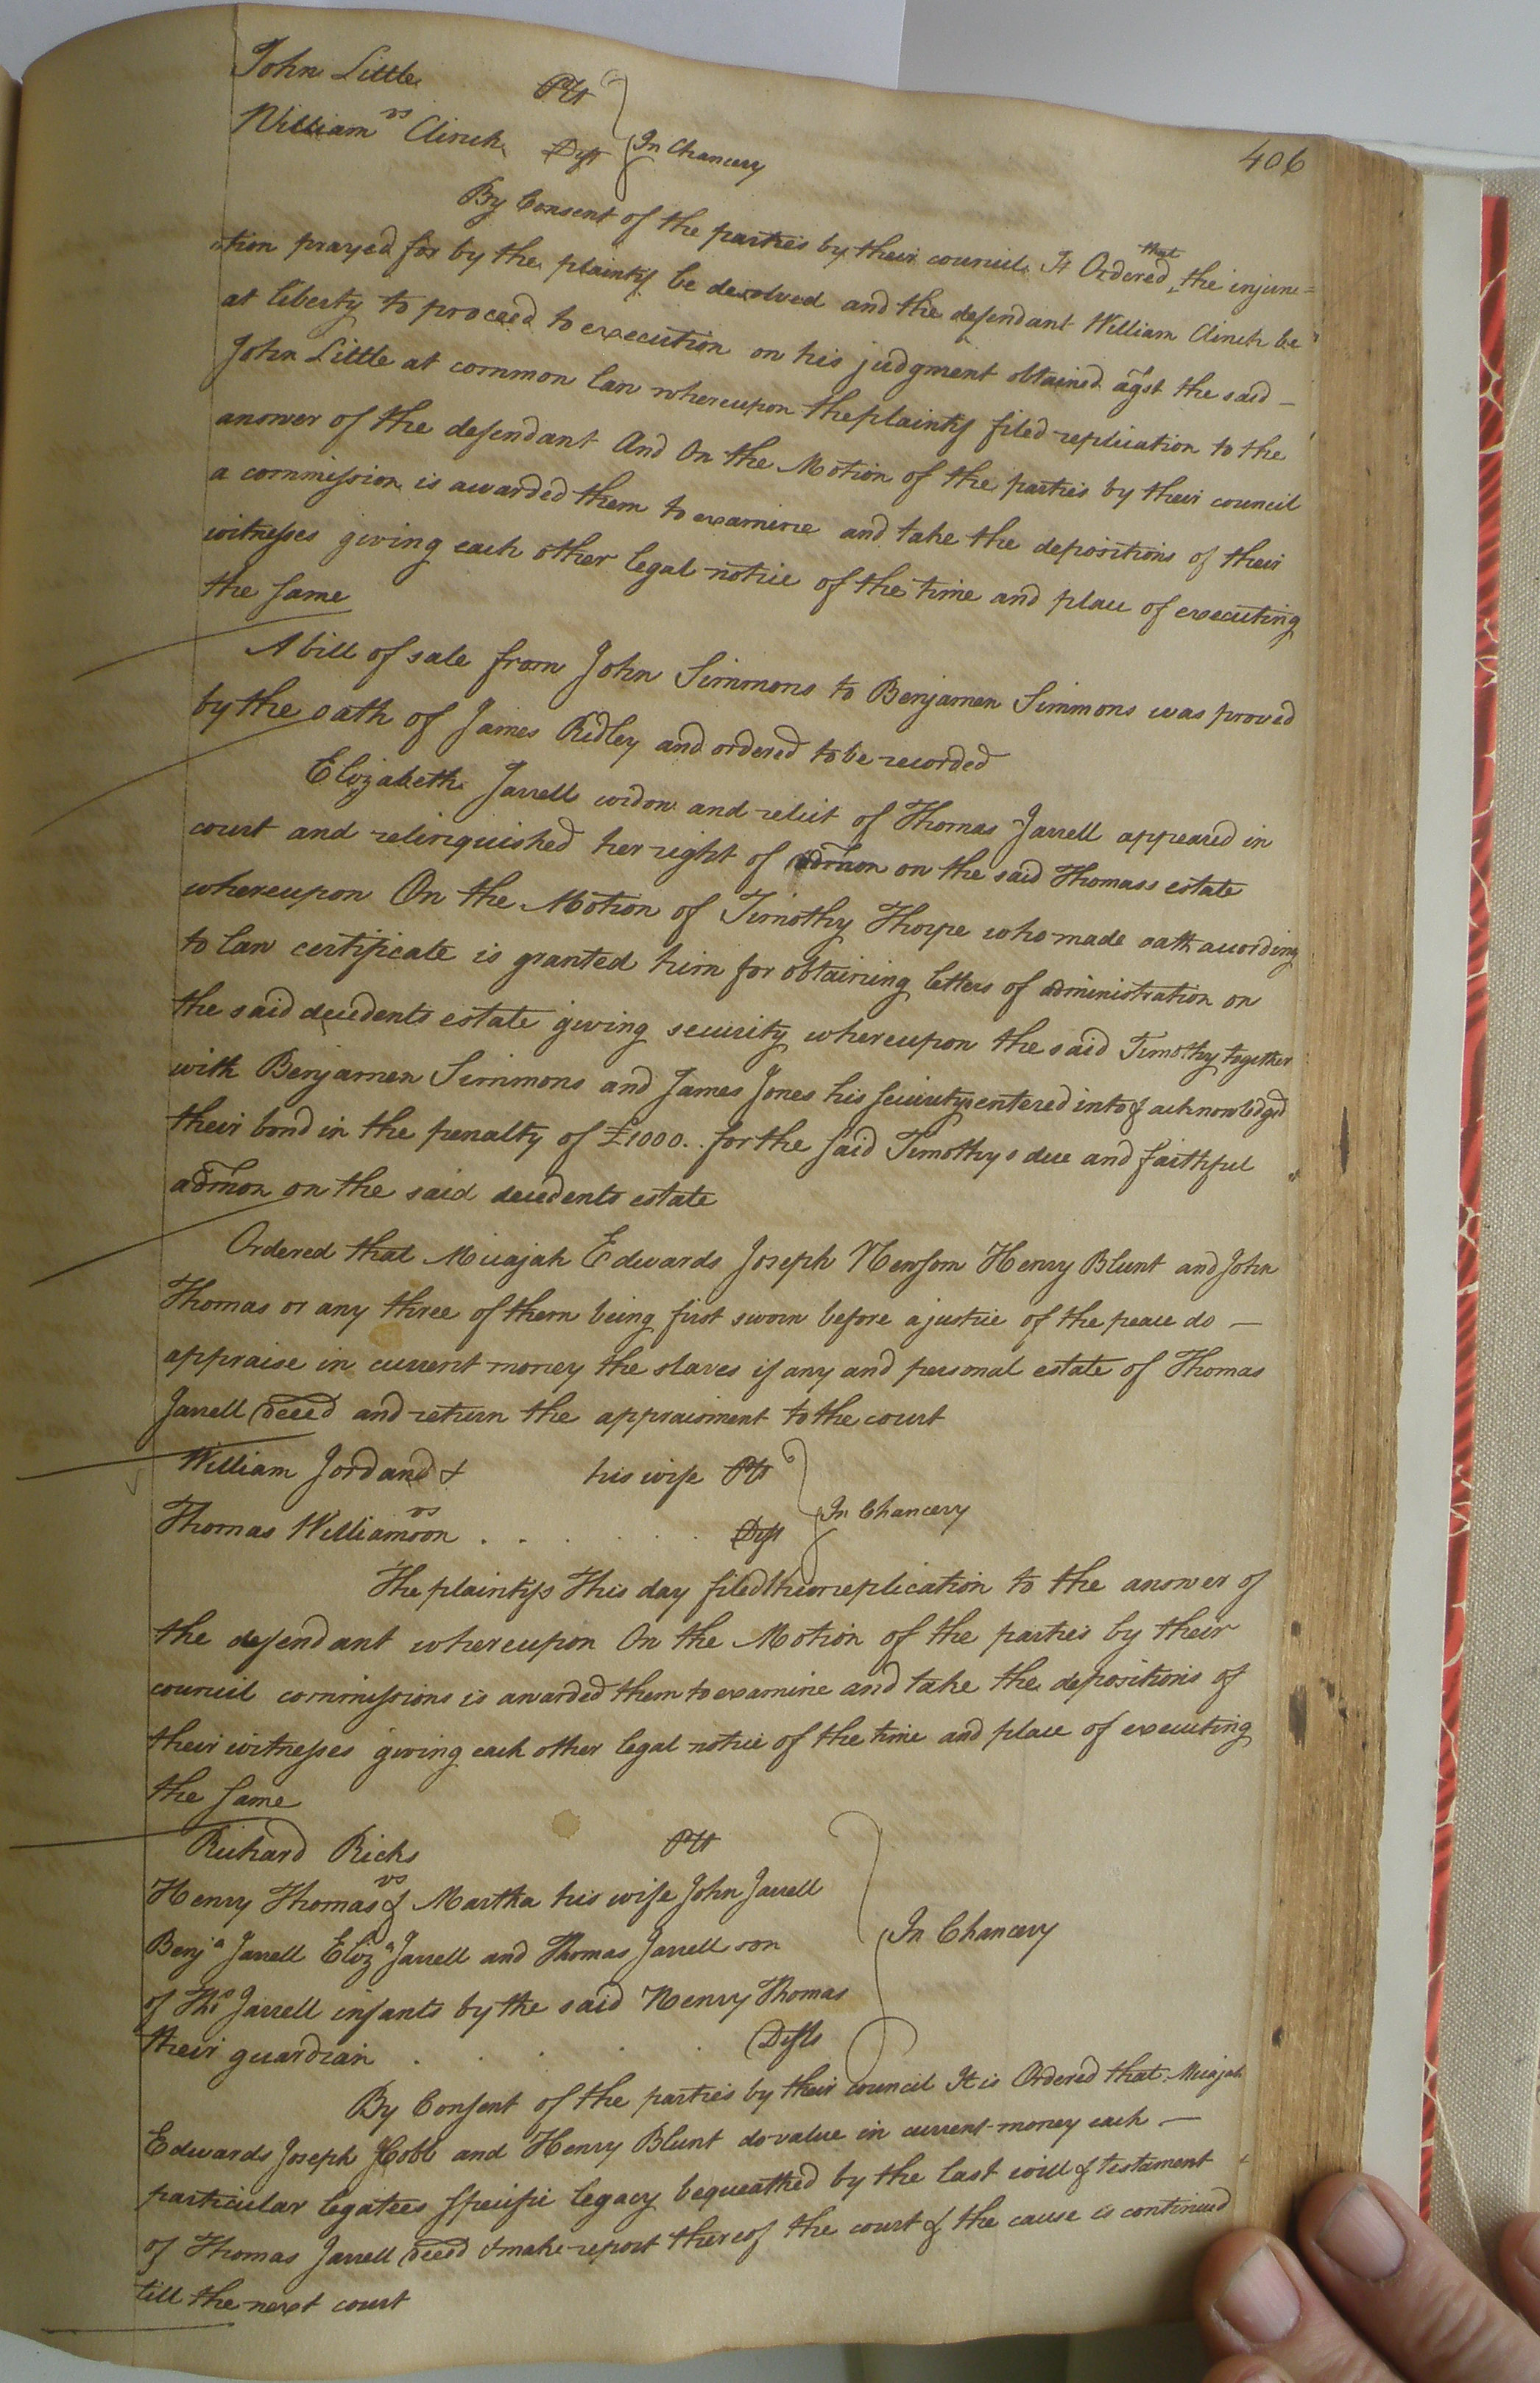 406
John Little Plt
vs
William Clinch Deft In Chancery
By Consent of the parties by their council It Ordered that the injunc=
tion prayed for by the plaintif be desolved and the defendant William Clinch be
at liberty to proceed to execution on his judgment obtained agst the said
John Little at common law whereupon the plaintif filed replication to the
answer of the defendant And On the Motion of the parties by their council
a commission is awarded them to examine and take the depositions of their
witnesses giving each other legal notice of the time and place of executing
the same
A bill of sale from John Simmons to Benjamen Simmons was proved
by the oath of James Ridley and ordered to be recorded
Elizabeth Jarrell widow and relict of Thomas Jarrell appeared in
court and relinquished her right of admon on the said Thomass estate
whereupon On the Motion of Timothy Thorpe who made oath according
to law certificate is granted him for obtaining letters of administration on
the said decedents estate giving security whereupon the said Timothy together
with Benjamen Simmons and James Jones his securitys entered into & acknowledged
their bond in the penalty of £1000.. for the said Timothys due and faithful
admon on the said decedents estate
Ordered that Micajah Edwards Joseph Newsom Henry Blunt and John
Thomas or any three of them being first sworn before a justice of the peace do —
appraise in current money the slaves if any and personal estate of Thomas
Jarrell deced and return the appraisment to the court
William Jordan & his wife Plts
vs
Thomas Williamson . . . . . Deft In Chancery
The plaintifs This day filed their replication to the answer of
the defendant whereupon On the Motion of the parties by their
council commissions is awarded them to examine and take the depositions of
their witnesses giving each other legal notice of the time and place of executing
the same
Richard Ricks Plt
vs
Henry Thomas & Martha his wife John Jarrell
Benja Jarrell Eliza Jarrell and Thomas Jarrell son In Chancery
of Thos Jarrell infants by the said Henry Thomas
their guardian . . . . . Defts
By Consent of the parties by their council It is Ordered that Micajah
Edwards Joseph Cobb and Henry Blunt do value in current money each —
particular legatees specific legacy bequeathed by the last will & testament
of Thomas Jarrell deced & make report thereof the court & the cause is continued
till the next court